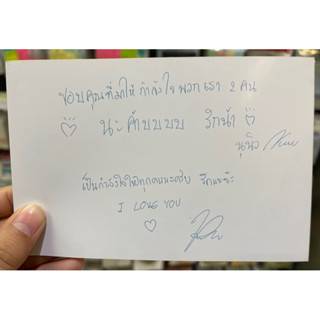 ขอบคุณที่มาให้กำลังใจพวกเรา 2 คน
นะค้าบบบบ รักน้า
นุนิว
เป็นกำลังใจให้ทุกคนนะครับ รักนะจ๊ะ
I LONG YOU